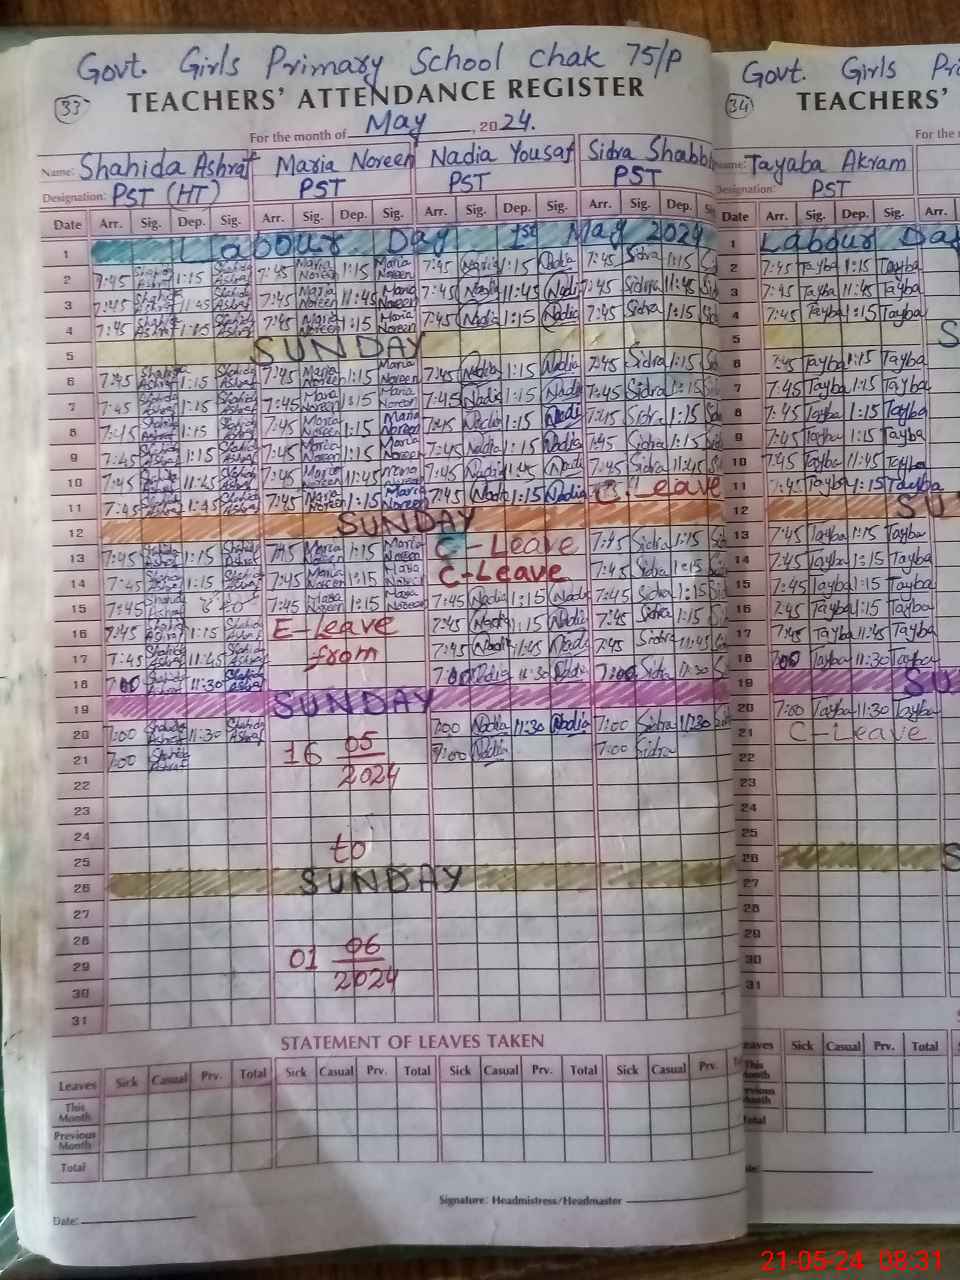 Govt. Girls Primary School Chak 75/P
33 TEACHERS' ATTENDANCE REGISTER
For the month of May, 2024.
Name: Shahida Ashraf Maria Noreen Nadia Yousaf Sidra Shabb
Designation: PST (HT) PST PST PST
Date Arr. Sig. Dep. Sig. Arr. Sig. Dep. Sig. Arr. Sig. Dep. Sig. Arr. Sig. Dep.
1 Labour Day 1st May 2024
2 7:45 Shahida Ashraf 1:15 Shahida Ashraf 7:45 Maria Noreen 1:15 Maria Noreen 7:45 Nadia 1:15 Nadia 7:45 Sidra 1:15
3 7:45 Shahida Ashraf 11:45 Shahida Ashraf 7:45 Maria Noreen 11:45 Maria Noreen 7:45 Nadia 11:45 Nadia 7:45 Sidra 11:45
4 7:45 Shahida Ashraf 1:15 Shahida Ashraf 7:45 Maria Noreen 1:15 Maria Noreen 7:45 Nadia 1:15 Nadia 7:45 Sidra 1:15
5 SUNDAY
6 7:45 Shahida Ashraf 1:15 Shahida Ashraf 7:45 Maria Noreen 1:15 Maria Noreen 7:45 Nadia 1:15 Nadia 7:45 Sidra 1:15
7 7:45 Shahida Ashraf 1:15 Shahida Ashraf 7:45 Maria Noreen 1:15 Maria Noreen 7:45 Nadia 1:15 Nadia 7:45 Sidra 1:15
8 7:45 Shahida Ashraf 1:15 Shahida Ashraf 7:45 Maria Noreen 1:15 Maria Noreen 7:45 Nadia 1:15 Nadia 7:45 Sidra 1:15
9 7:45 Shahida Ashraf 1:15 Shahida Ashraf 7:45 Maria Noreen 1:15 Maria Noreen 7:45 Nadia 1:15 Nadia 7:45 Sidra 1:15
10 7:45 Shahida Ashraf 11:45 Shahida Ashraf 7:45 Maria Noreen 11:45 Maria Noreen 7:45 Nadia 11:45 Nadia 7:45 Sidra 11:45
11 7:45 Shahida Ashraf Shahida Ashraf 7:45 Maria Noreen 1:15 Maria Noreen 7:45 Nadia 1:15 Nadia C. Leave
12 SUNDAY
13 7:45 Shahida Ashraf 1:15 Shahida Ashraf 7:45 Maria Noreen 1:15 Maria Noreen C-Leave 7:45 Sidra 1:15
14 7:45 Shahida Ashraf 1:15 Shahida Ashraf 7:45 Maria Noreen 1:15 Noreen C-Leave 7:45 Sidra 1:15
15 7:45 Shahida Ashraf 7:45 Noreen 1:15 Noreen 7:45 Nadia 1:15 Nadia 7:45 Sidra 1:15
16 7:45 Shahida Ashraf 1:15 Shahida Ashraf E-Leave 7:45 Nadia 1:15 Nadia 7:45 Sidra 1:15
17 7:45 Shahida Ashraf 11:45 Shahida Ashraf from 7:45 Nadia 11:45 Nadia 7:45 Sidra 11:45
18 7:00 Shahida Ashraf 11:30 Shahida Ashraf 7:00 Nadia 11:30 Nadia 7:00 Sidra 11:30
19 SUNDAY
20 7:00 Shahida Ashraf 11:30 Shahida Ashraf 7:00 Nadia 11:30 Nadia 7:00 Sidra 11:30
21 7:00 Shahida Ashraf 16 05/2024 7:00 Nadia 7:00 Sidra
22
23
24
25 to
26 SUNDAY
27
28
29 01 06/2024
30
31
STATEMENT OF LEAVES TAKEN
Leaves Sick Casual Prv. Total Sick Casual Prv. Total Sick Casual Prv. Total Sick Casual Prv.
This Month
Previous Month
Total
Signature: Headmistress/Headmaster
Date:
Govt. Girls Pri
34 TEACHERS'
For the
Name: Tayaba Akram
Designation: PST
Date Arr. Sig. Dep. Sig. Arr.
1 Labour Day
2 7:45 Tayba 1:15 Tayba
3 7:45 Tayba 11:45 Tayba
4 7:45 Tayba 1:15 Tayba
5 S
6 7:45 Tayba 1:15 Tayba
7 7:45 Tayba 1:15 Tayba
8 7:45 Tayba 1:15 Tayba
9 7:45 Tayba 1:15 Tayba
10 7:45 Tayba 11:45 Tayba
11 7:45 Tayba 1:15 Tayba
12 SU
13 7:45 Tayba 1:15 Tayba
14 7:45 Tayba 1:15 Tayba
15 7:45 Tayba 1:15 Tayba
16 7:45 Tayba 1:15 Tayba
17 7:45 Tayba 11:45 Tayba
18 7:00 Tayba 11:30 Tayba
19 SU
20 7:00 Tayba 11:30 Tayba
21 C-Leave
22
23
24
25
26 S
27
28
29
30
31
Leaves Sick Casual Prv. Total
This Month
Previous Month
Total
21-05-24 08:31